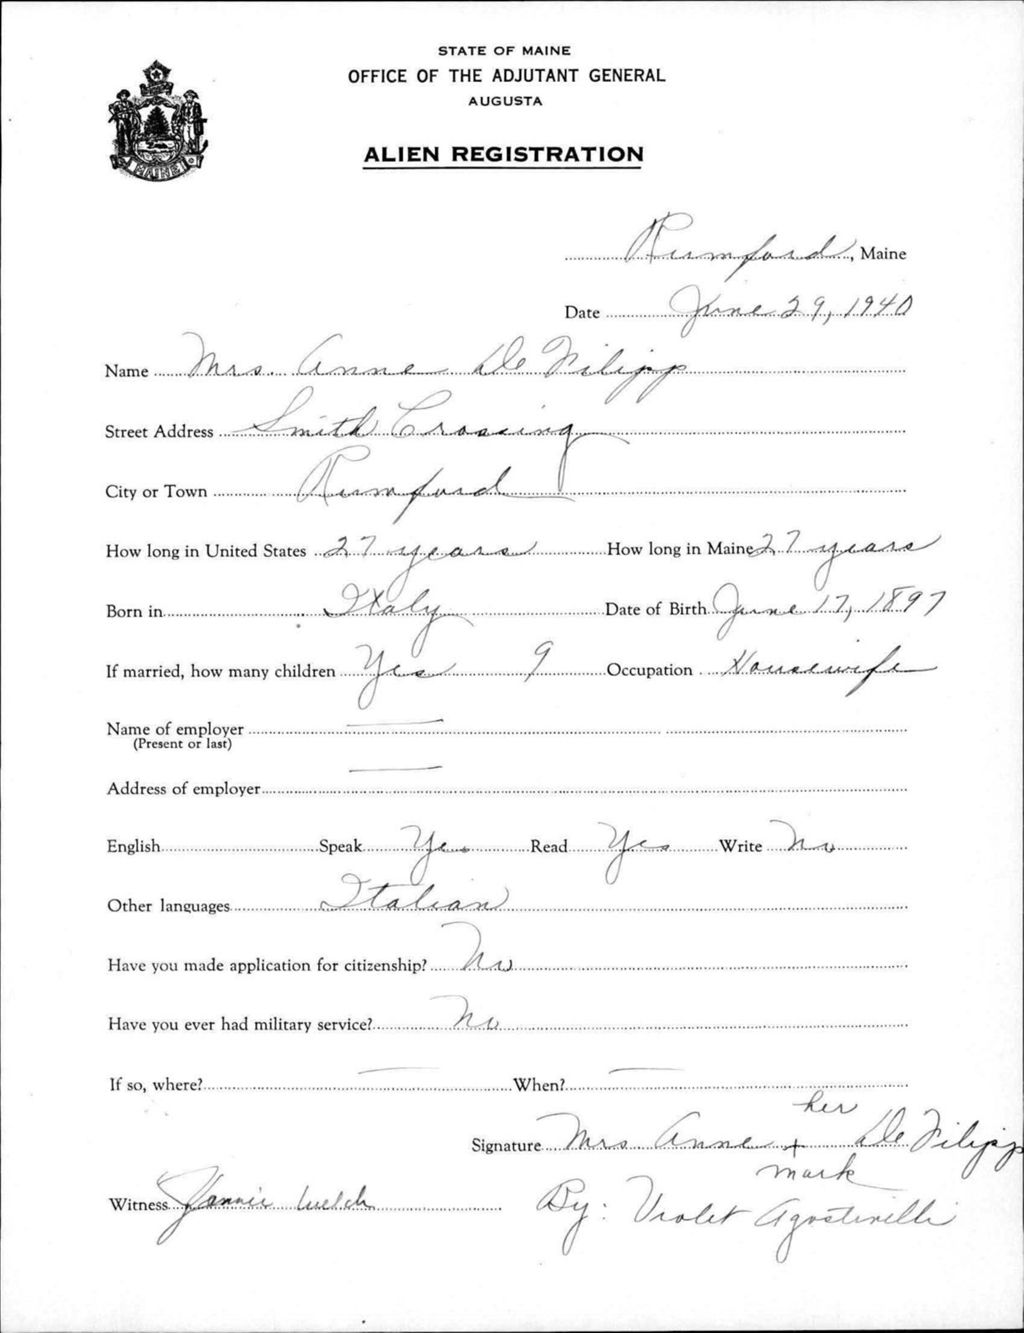 STATE OF MAINE
OFFICE OF THE ADJUTANT GENERAL
AUGUSTA
ALIEN REGISTRATION
MAINE
Rumford, Maine
Date June 29, 1940
Name Mrs. Anne De Filipp
Street Address Smith Crossing
City or Town Rumford
How long in United States 27 years How long in Maine 27 years
Born in Italy Date of Birth June 17, 1897
If married, how many children Yes 9 Occupation Housewife
Name of employer
(Present or last)
Address of employer
English Speak Yes Read Yes Write No
Other languages Italian
Have you made application for citizenship? No
Have you ever had military service? No
If so, where? When?
her
Signature Mrs Anne + De Filipp
mark
Witness Welch By: Violet Agostinelli